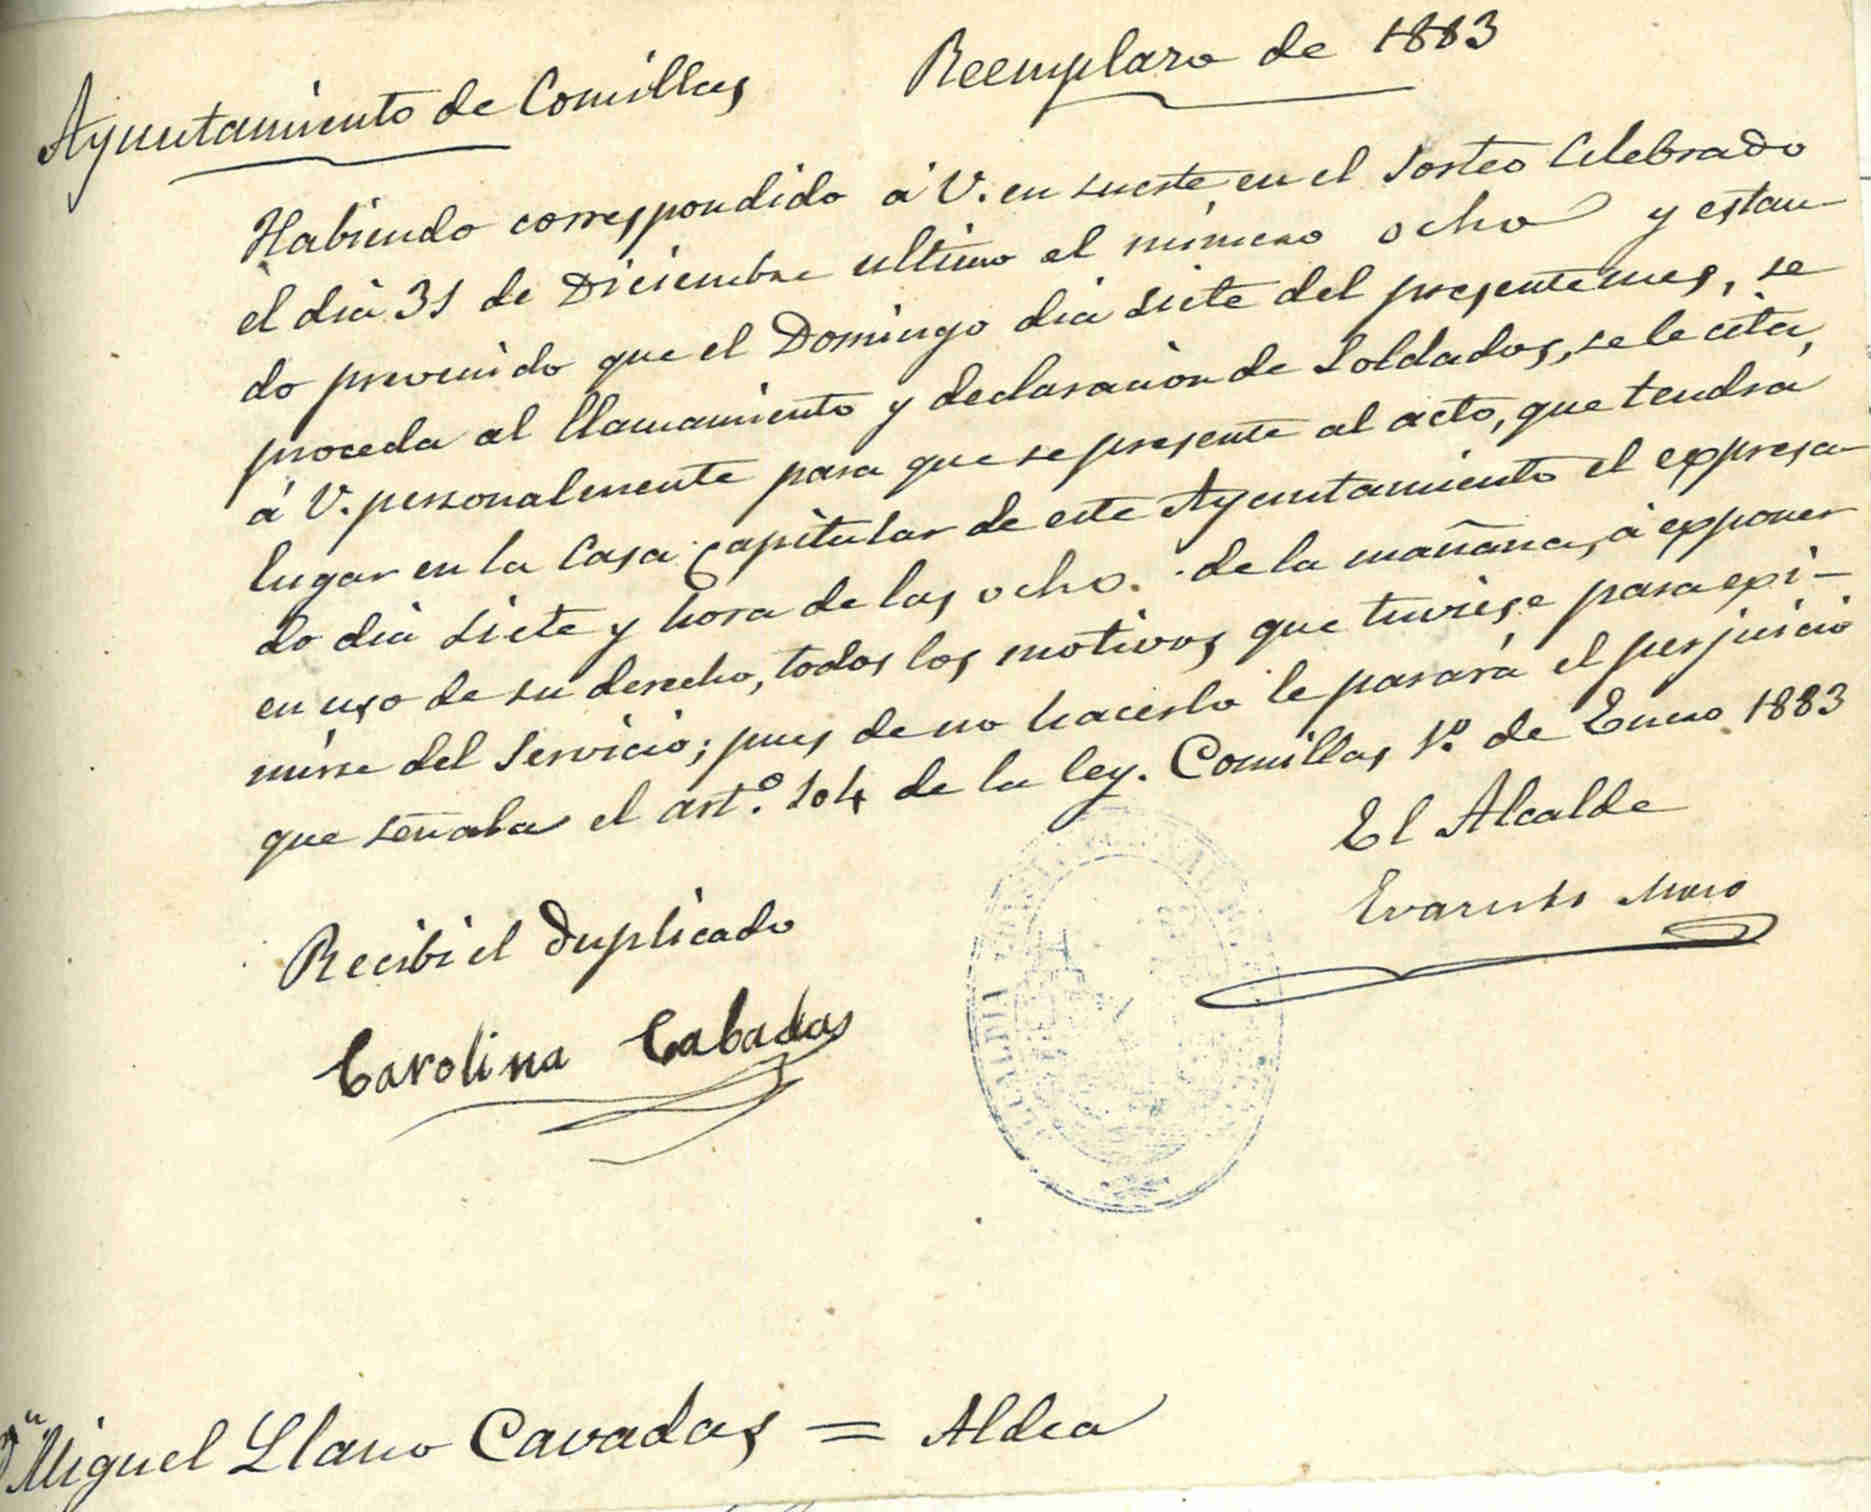 Ayuntamiento de Comillas
Reemplazo de 1883
Habiendo correspondido á V. en suerte, en el Sorteo Celebrado
el dia 31 de Diciembre ultimo el número ocho y estan-
do prevenido que el Domingo dia siete del presente mes, se
proceda al llamamiento y declaracion de Soldados, se le cita,
á V. personalmente para que se presente al acto, que tendrá
lugar en la Casa Capitular de este Ayuntamiento el expresa-
do dia siete y hora de las ocho de la mañana, á exponer
en uso de su derecho, todos los motivos que tuviese para exi-
mirse del Servicio; pues de no hacerlo le parará el perjuicio
que señala el art.º 104 de la ley. Comillas 1º. de Enero 1883
El Alcalde
Evaristo Moro
Recibi el duplicado
Carolina Cabadas
Dn Miguel Llano Cavadas = Aldea